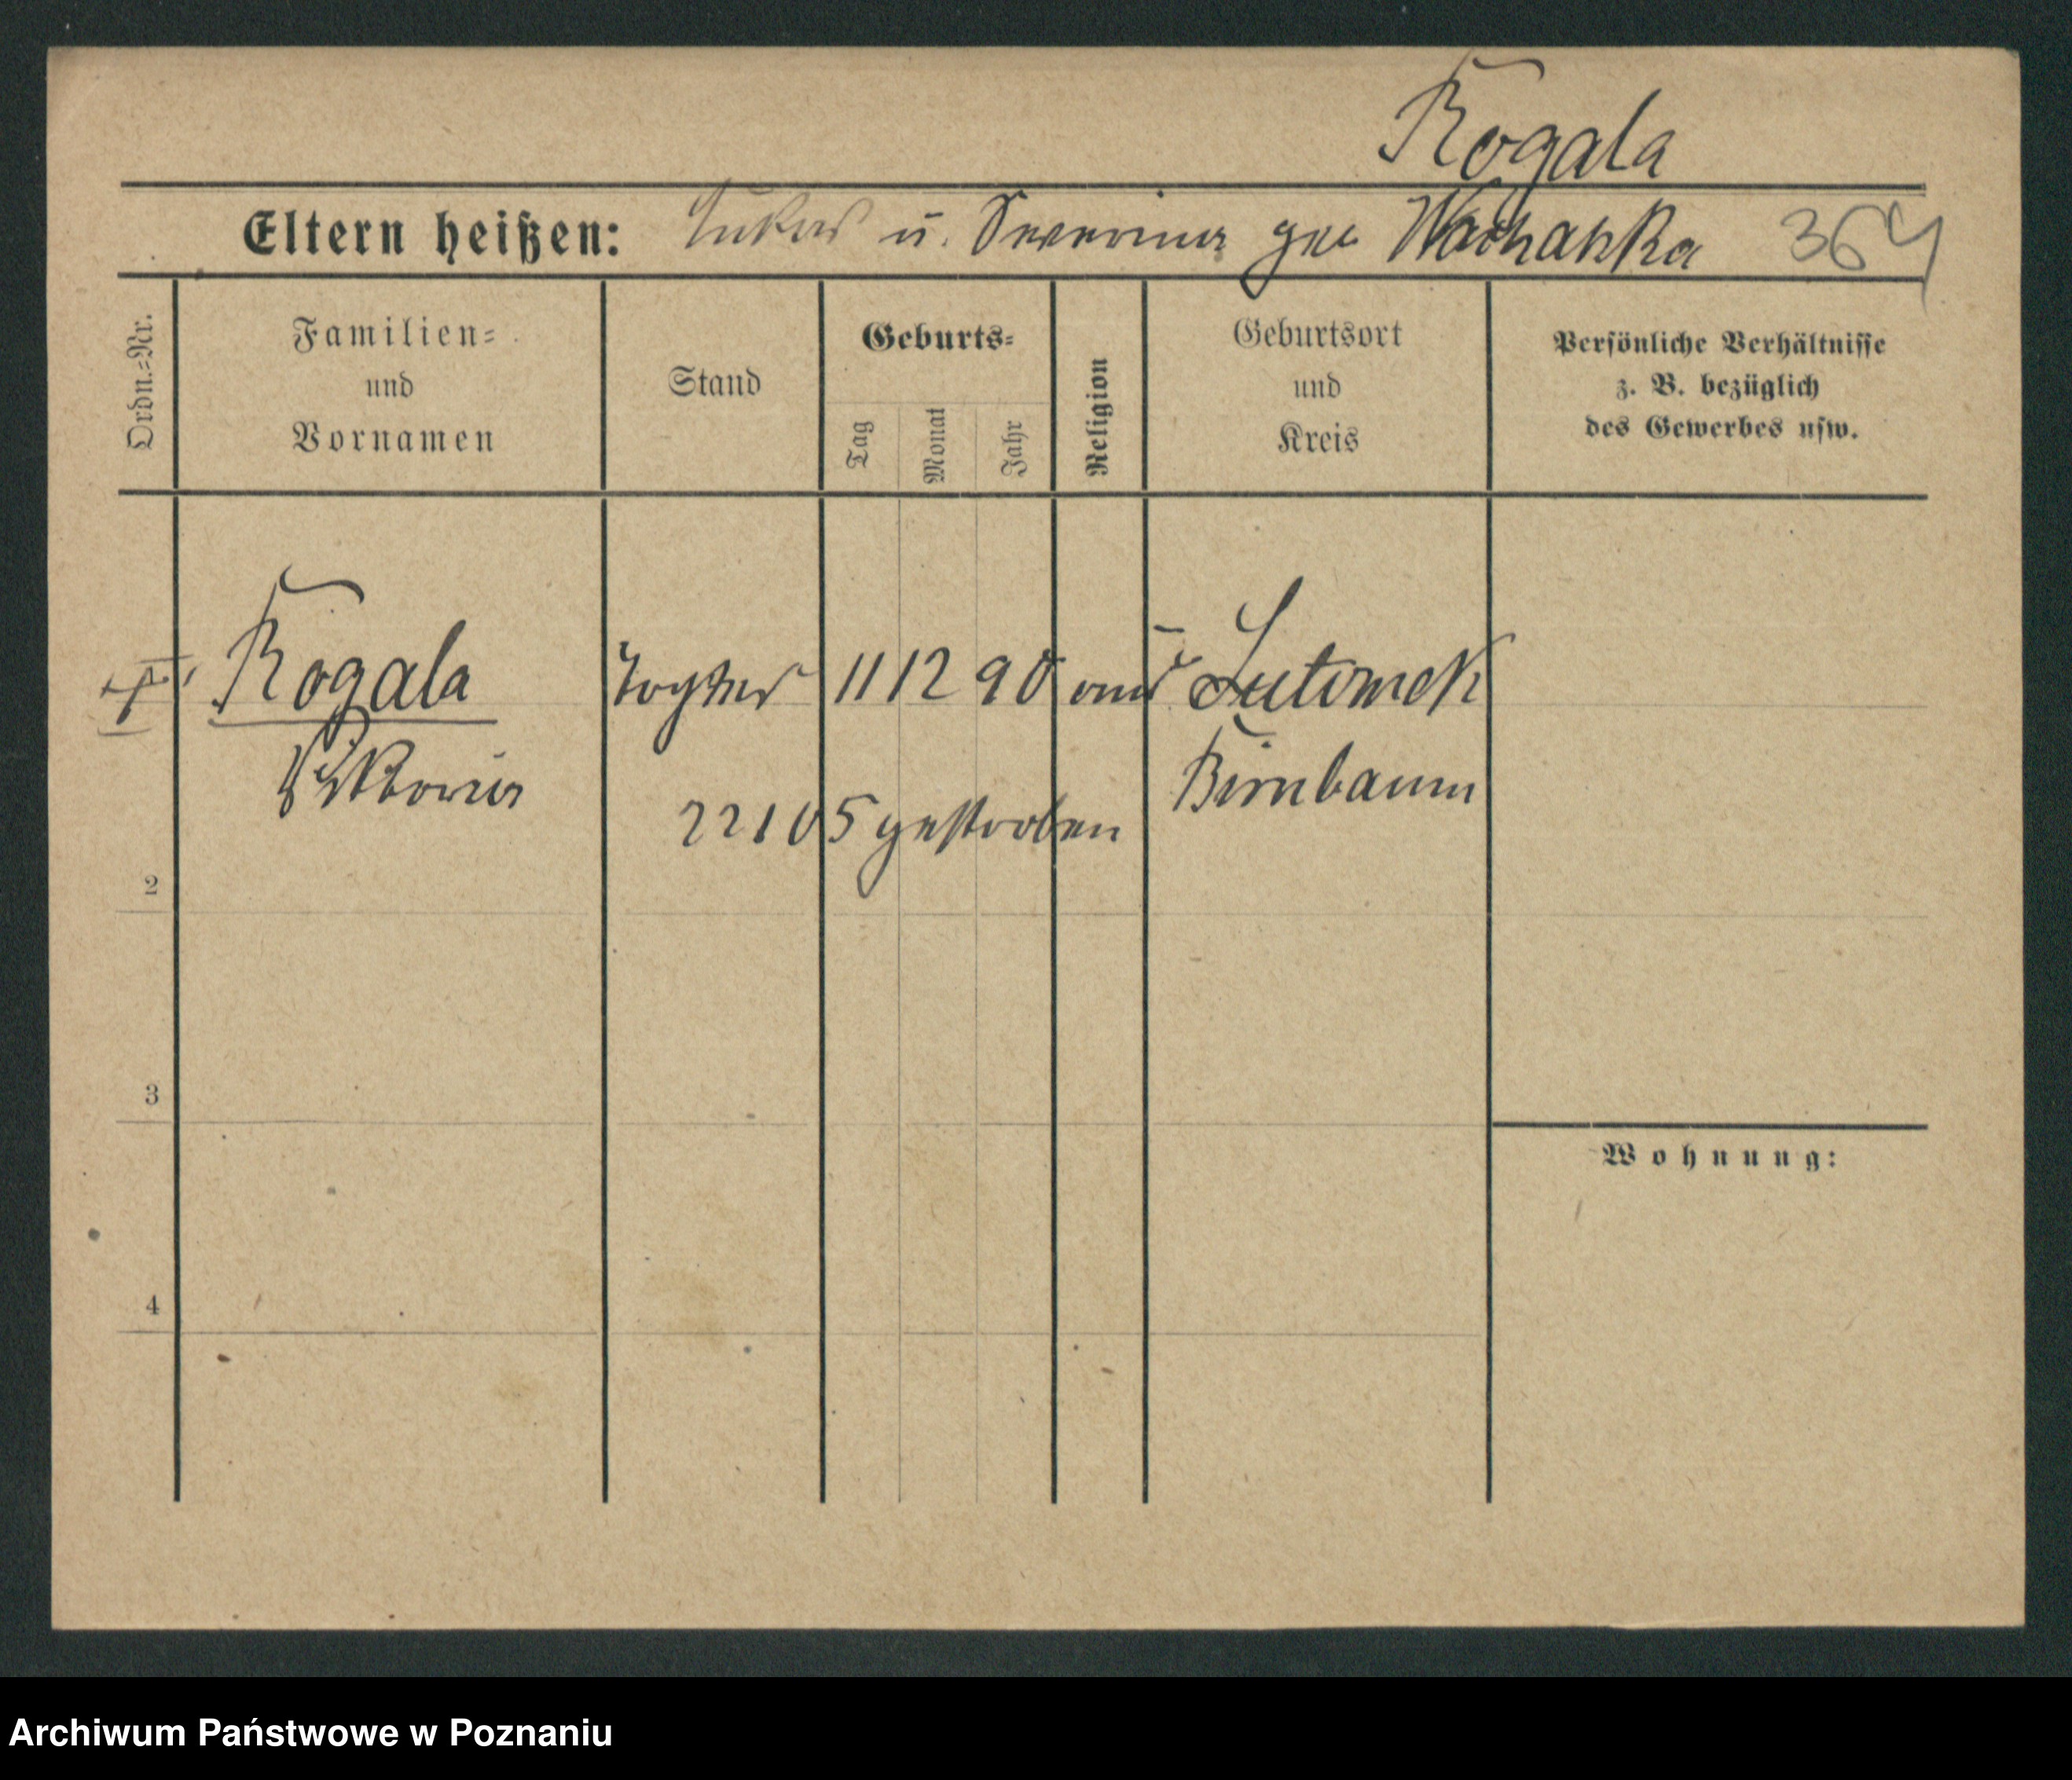 Rogala
Eltern heißen: Lukas u. Severina geb Wachaska 364
Ordn.-Nr.
Familien-
und
Vornamen
Stand
Geburts-
Tag
Monat
Jahr
Religion
Geburtsort
und
Kreis
Persönliche Verhältnisse
z. B. bezüglich
des Gewerbes usw.
Rogala Tochter 11 12 90 Lutomek
Viktoria Birnbaum
22 1 05 gestorben
2
3
Wohnung:
4
Archiwum Państwowe w Poznaniu